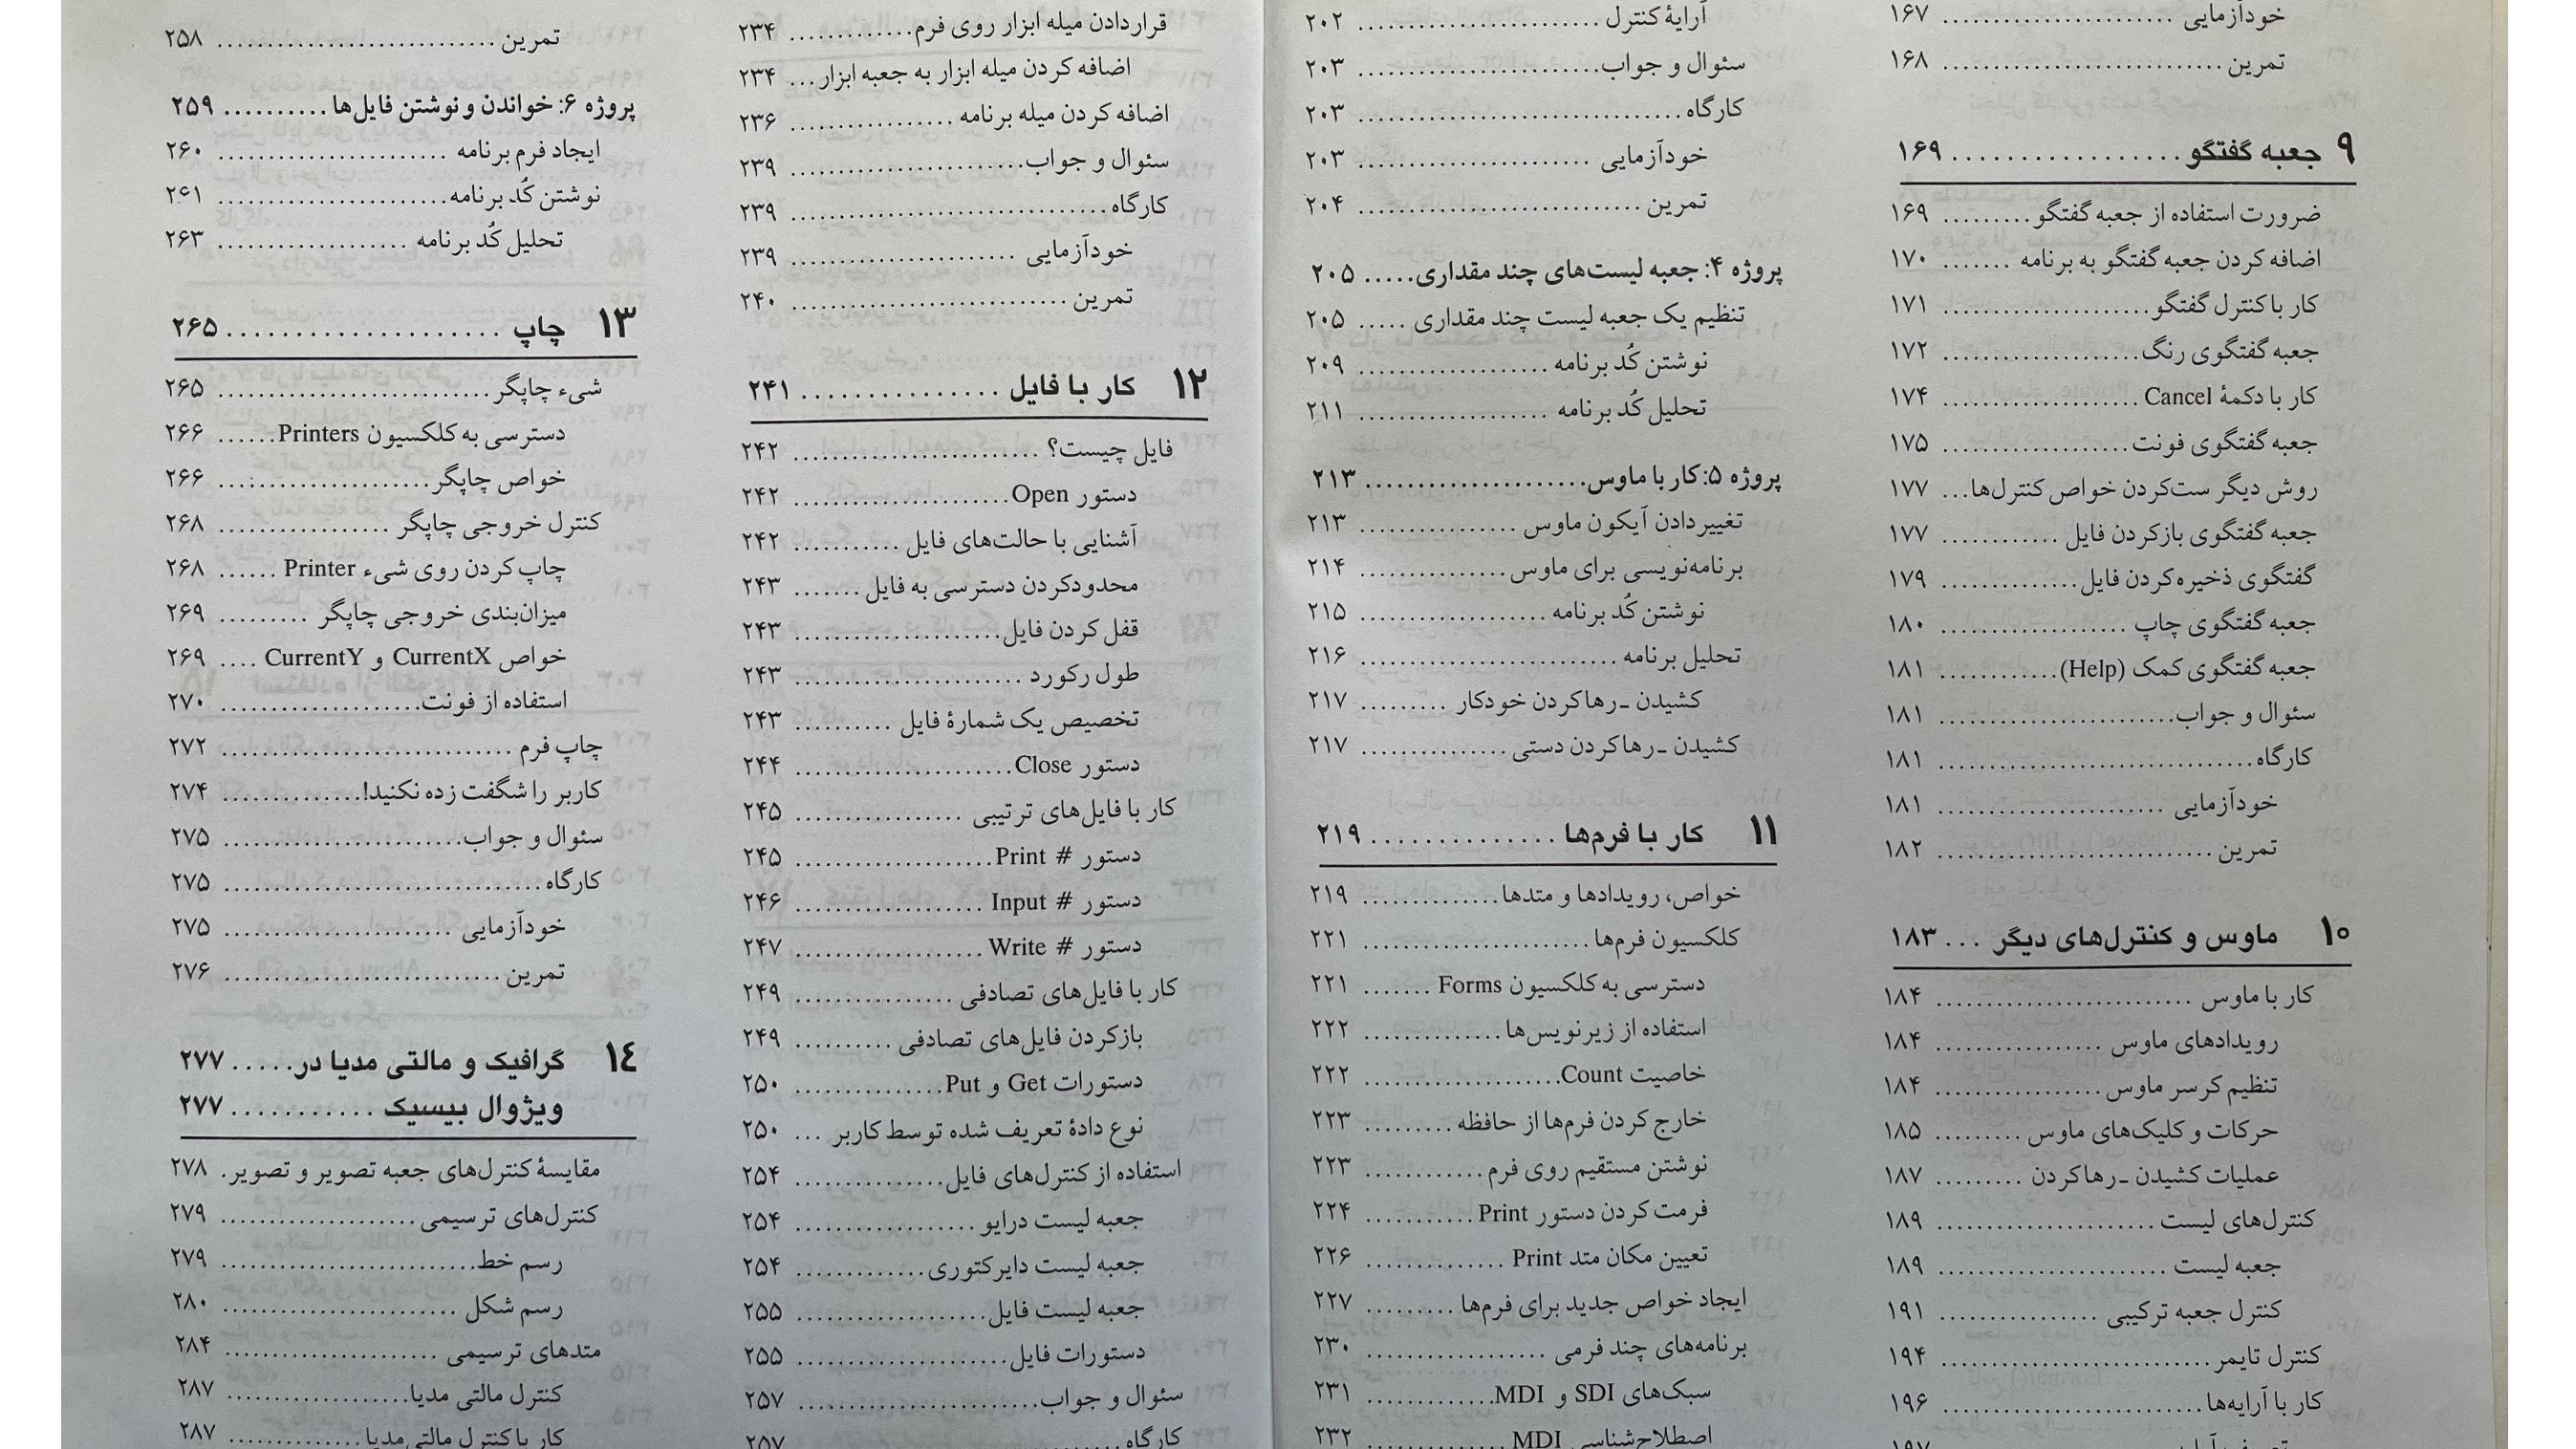 خودآزمایی ........................ ۱۶۷
تمرین ............................ ۱۶۸
۹ جعبه گفتگو ................. ۱۶۹
ضرورت استفاده از جعبه گفتگو ......... ۱۶۹
اضافه کردن جعبه گفتگو به برنامه ....... ۱۷۰
کار با کنترل گفتگو ..................... ۱۷۱
جعبه گفتگوی رنگ .................... ۱۷۲
کار با دکمهٔ Cancel .................... ۱۷۴
جعبه گفتگوی فونت ................... ۱۷۵
روش دیگر ست‌کردن خواص کنترل‌ها ... ۱۷۷
جعبه گفتگوی بازکردن فایل ............ ۱۷۷
گفتگوی ذخیره‌کردن فایل .............. ۱۷۹
جعبه گفتگوی چاپ ................... ۱۸۰
جعبه گفتگوی کمک (Help) ............ ۱۸۱
سئوال و جواب ........................ ۱۸۱
کارگاه ................................ ۱۸۱
خودآزمایی ....................... ۱۸۱
تمرین ............................ ۱۸۲
۱۰ ماوس و کنترل‌های دیگر ... ۱۸۳
کار با ماوس .......................... ۱۸۴
رویدادهای ماوس ................. ۱۸۴
تنظیم کرسر ماوس ................. ۱۸۴
حرکات و کلیک‌های ماوس ......... ۱۸۵
عملیات کشیدن ـ رهاکردن ......... ۱۸۷
کنترل‌های لیست ...................... ۱۸۹
جعبه لیست ....................... ۱۸۹
کنترل جعبه ترکیبی ................ ۱۹۱
کنترل تایمر ........................... ۱۹۴
کار با آرایه‌ها .......................... ۱۹۶
آرایهٔ کنترل ......................... ۲۰۲
سئوال و جواب ......................... ۲۰۳
کارگاه ................................. ۲۰۳
خودآزمایی ........................ ۲۰۳
تمرین ............................. ۲۰۴
پروژه ۴: جعبه لیست‌های چند مقداری ..... ۲۰۵
تنظیم یک جعبه لیست چند مقداری ..... ۲۰۵
نوشتن کُد برنامه ................... ۲۰۹
تحلیل کُد برنامه ................... ۲۱۱
پروژه ۵: کار با ماوس ..................... ۲۱۳
تغییردادن آیکون ماوس ................ ۲۱۳
برنامه‌نویسی برای ماوس ............... ۲۱۴
نوشتن کُد برنامه ................... ۲۱۵
تحلیل برنامه .......................... ۲۱۶
کشیدن ـ رهاکردن خودکار ......... ۲۱۷
کشیدن ـ رهاکردن دستی ............... ۲۱۷
۱۱ کار با فرم‌ها ............... ۲۱۹
خواص، رویدادها و متدها .............. ۲۱۹
کلکسیون فرم‌ها ....................... ۲۲۱
دسترسی به کلکسیون Forms ....... ۲۲۱
استفاده از زیرنویس‌ها ............... ۲۲۲
خاصیت Count .................... ۲۲۲
خارج کردن فرم‌ها از حافظه ......... ۲۲۳
نوشتن مستقیم روی فرم ............ ۲۲۳
فرمت کردن دستور Print ........... ۲۲۴
تعیین مکان متد Print .............. ۲۲۶
ایجاد خواص جدید برای فرم‌ها ......... ۲۲۷
برنامه‌های چند فرمی .................. ۲۳۰
سبک‌های SDI و MDI ............. ۲۳۱
اصطلاح‌شناسی MDI .............. ۲۳۲
قراردادن میله ابزار روی فرم ............. ۲۳۴
اضافه کردن میله ابزار به جعبه ابزار ... ۲۳۴
اضافه کردن میله برنامه ................. ۲۳۶
سئوال و جواب ........................ ۲۳۹
کارگاه ................................ ۲۳۹
خودآزمایی ....................... ۲۳۹
تمرین ............................ ۲۴۰
۱۲ کار با فایل ............... ۲۴۱
فایل چیست؟ ......................... ۲۴۲
دستور Open ...................... ۲۴۲
آشنایی با حالت‌های فایل ........... ۲۴۲
محدودکردن دسترسی به فایل ....... ۲۴۳
قفل کردن فایل ..................... ۲۴۳
طول رکورد ....................... ۲۴۳
تخصیص یک شمارهٔ فایل .......... ۲۴۳
دستور Close ...................... ۲۴۴
کار با فایل‌های ترتیبی ................. ۲۴۵
دستور # Print .................... ۲۴۵
دستور # Input ................... ۲۴۶
دستور # Write ................... ۲۴۷
کار با فایل‌های تصادفی ................ ۲۴۹
بازکردن فایل‌های تصادفی .......... ۲۴۹
دستورات Get و Put ............... ۲۵۰
نوع دادهٔ تعریف شده توسط کاربر ... ۲۵۰
استفاده از کنترل‌های فایل ............... ۲۵۴
جعبه لیست درایو .................. ۲۵۴
جعبه لیست دایرکتوری ............. ۲۵۴
جعبه لیست فایل ................... ۲۵۵
دستورات فایل ..................... ۲۵۵
سئوال و جواب ........................ ۲۵۷
کارگاه ................................ ۲۵۷
تمرین ............................ ۲۵۸
پروژه ۶: خواندن و نوشتن فایل‌ها .......... ۲۵۹
ایجاد فرم برنامه ....................... ۲۶۰
نوشتن کُد برنامه ....................... ۲۶۱
تحلیل کُد برنامه ................... ۲۶۳
۱۳ چاپ ..................... ۲۶۵
شیء چاپگر ........................... ۲۶۵
دسترسی به کلکسیون Printers ...... ۲۶۶
خواص چاپگر ..................... ۲۶۶
کنترل خروجی چاپگر ................. ۲۶۸
چاپ کردن روی شیء Printer ...... ۲۶۸
میزان‌بندی خروجی چاپگر ......... ۲۶۹
خواص CurrentX و CurrentY .... ۲۶۹
استفاده از فونت .................... ۲۷۰
چاپ فرم ............................. ۲۷۲
کاربر را شگفت زده نکنید! .............. ۲۷۴
سئوال و جواب ........................ ۲۷۵
کارگاه ................................ ۲۷۵
خودآزمایی ....................... ۲۷۵
تمرین ............................ ۲۷۶
۱۴ گرافیک و مالتی مدیا در ..... ۲۷۷
ویژوال بیسیک ........... ۲۷۷
مقایسهٔ کنترل‌های جعبه تصویر و تصویر . ۲۷۸
کنترل‌های ترسیمی ................... ۲۷۹
رسم خط .......................... ۲۷۹
رسم شکل ........................ ۲۸۰
متدهای ترسیمی ...................... ۲۸۴
کنترل مالتی مدیا ................... ۲۸۷
کار با کنترل مالتی‌مدیا .............. ۲۸۷